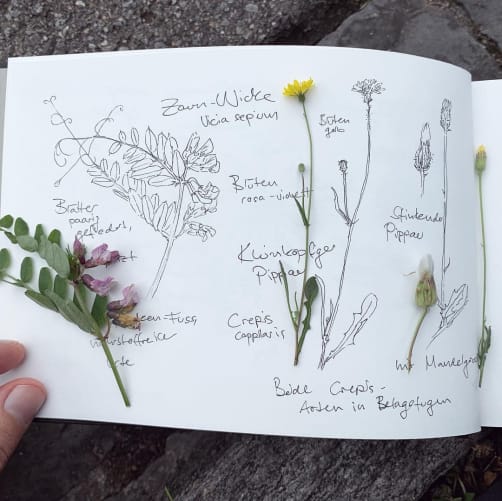 Zaun-Wicke
Vicia sepium
Blätter
paarig
gefiedert,
Blüten
rosa-violett
Blüten
gelb
Kleinköpfiger
Pippau
Crepis
capillaris
Stinkender
Pippau
mit Mandelger
Beide Crepis-
Arten in Belagsfugen